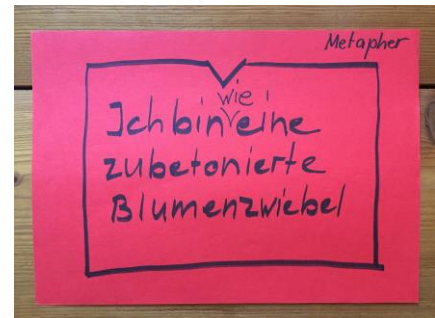 Metapher
Ich bin wie eine
zubetonierte
Blumenzwiebel